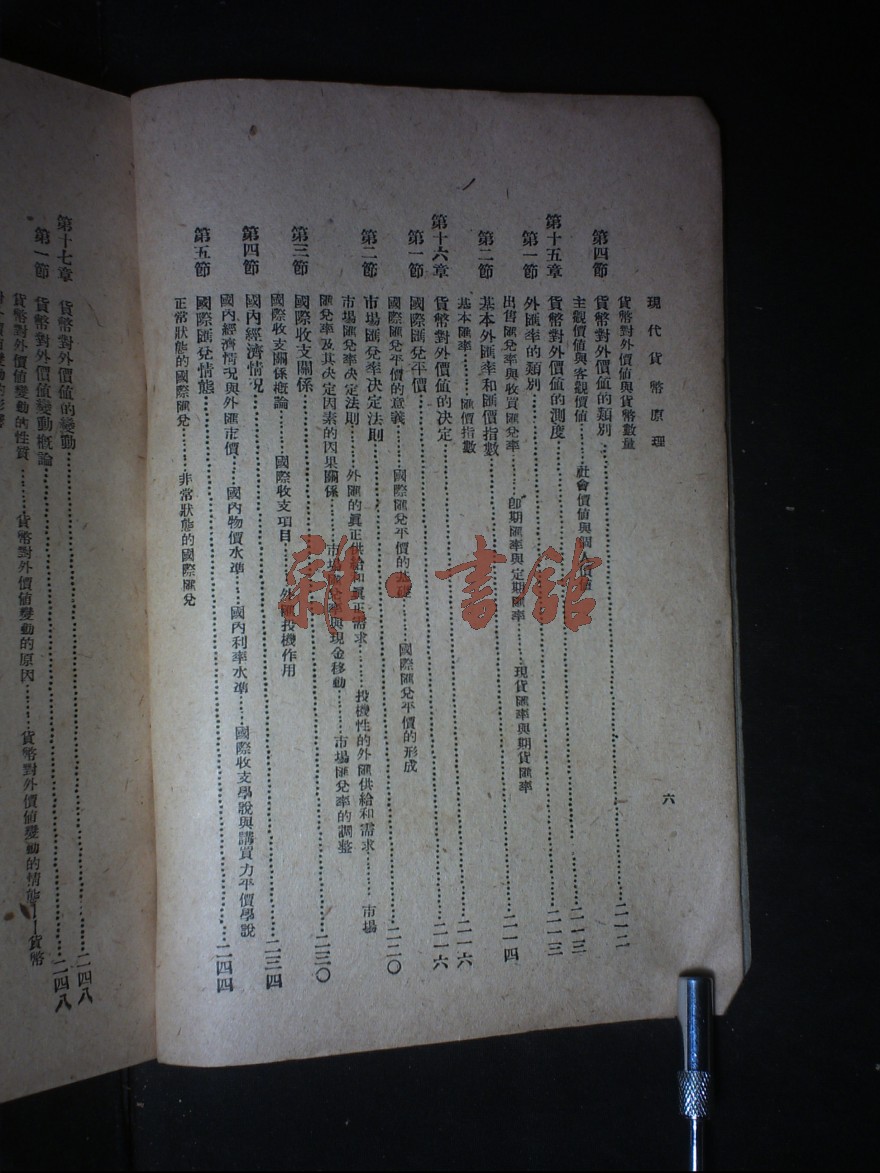 現代貨幣原理 六
貨幣對外價值與貨幣數量
第四節 貨幣對外價值的類別……二一二
主觀價值與客觀價值……社會價值與個人價值
第十五章 貨幣對外價值的測度……二一三
第一節 外匯率的類別……二一三
出售匯兌率與收買匯兌率……即期匯率與定期匯率……現貨匯率與期貨匯率
第二節 基本外匯率和匯價指數……二一四
基本匯率……匯價指數
第十六章 貨幣對外價值的決定……二一六
第一節 國際匯兌平價……二一六
國際匯兌平價的意義……國際匯兌平價的基礎……國際匯兌平價的形成
第二節 市場匯兌率決定法則……二二〇
市場匯兌率決定法則……外匯的眞正供給和眞正需求……投機性的外匯供給和需求……市場
匯兌率及其決定因素的因果關係……市場匯兌率與現金移動……市場匯兌率的調整
第三節 國際收支關係……二三〇
國際收支關係槪論……國際收支項目……外匯投機作用
第四節 國內經濟情況……二三四
國內經濟情況與外匯市價……國內物價水準……國內利率水準……國際收支學說與購買力平價學說
第五節 國際匯兌情態……二四四
正常狀態的國際匯兌……非常狀態的國際匯兌
第十七章 貨幣對外價值的變動……二四八
第一節 貨幣對外價值變動概論……二四八
貨幣對外價值變動的性質……貨幣對外價值變動的原因……貨幣對外價值變動的情態——貨幣
雜·書館